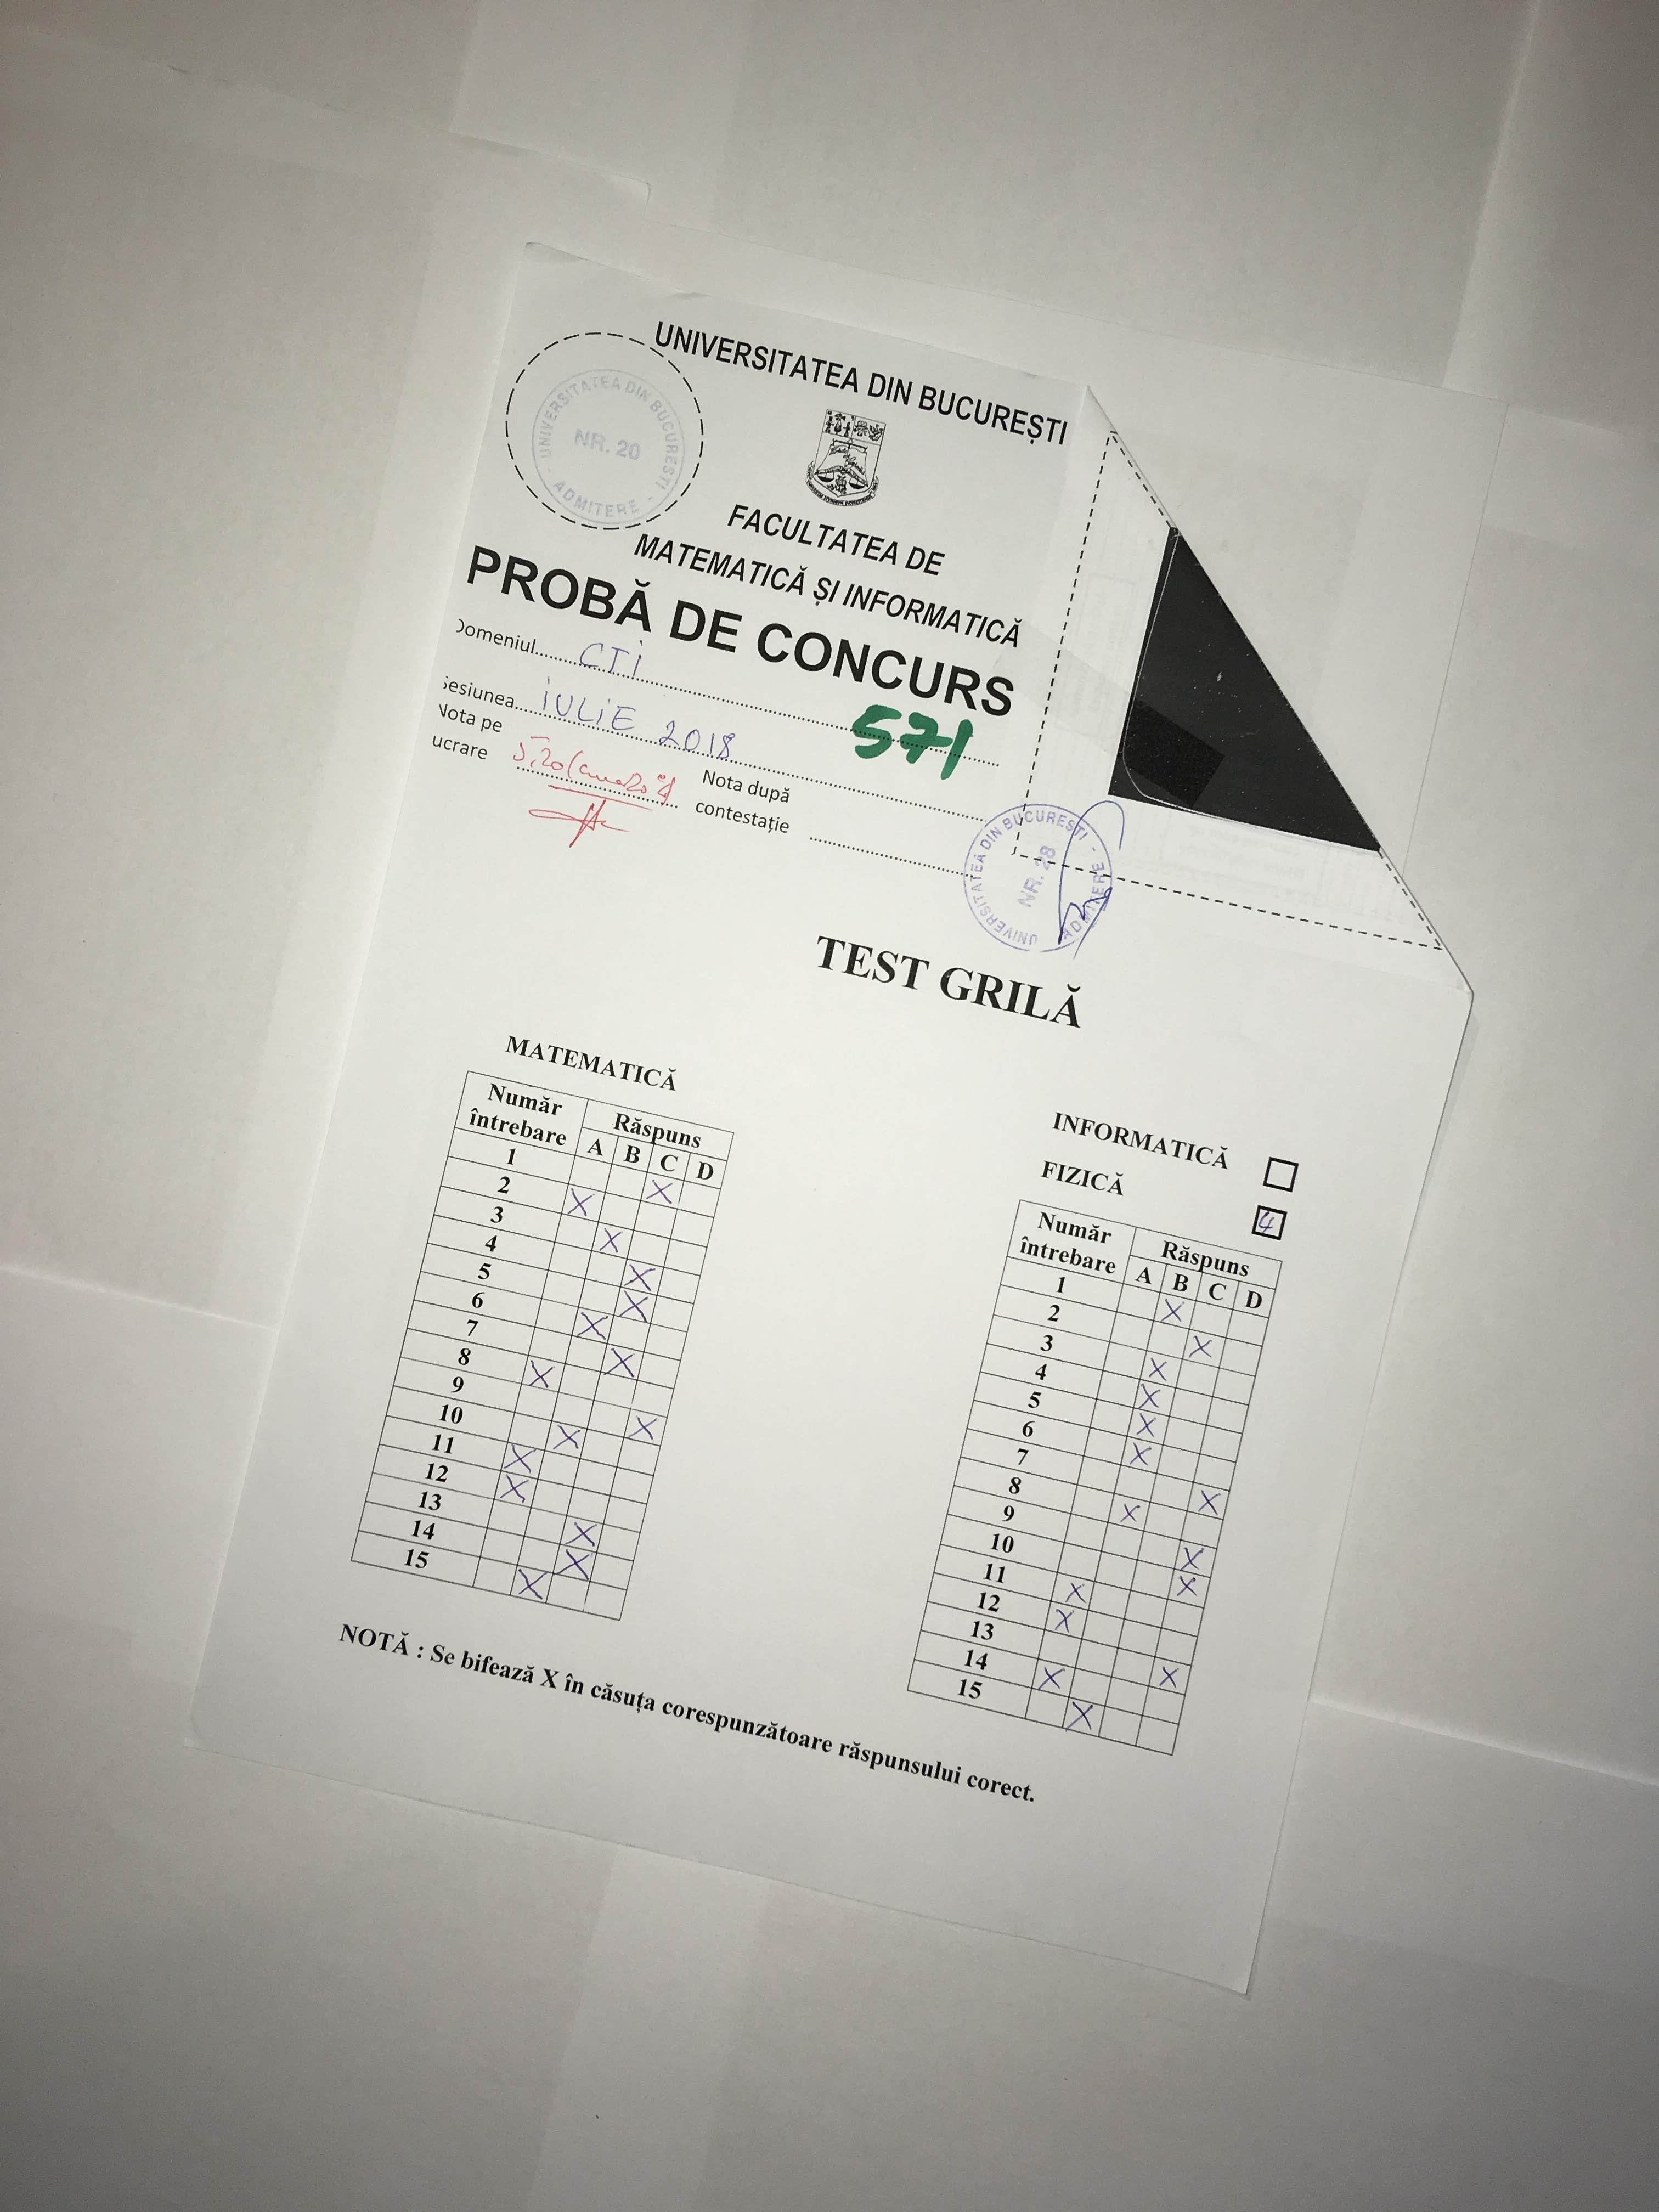 UNIVERSITATEA DIN BUCUREȘTI
UNIVERSITATEA DIN BUCURESTI - ADMITERE -
NR. 20
FACULTATEA DE
MATEMATICĂ ȘI INFORMATICĂ
PROBĂ DE CONCURS
Domeniul CTI
571
Sesiunea IULIE 2018
Nota pe
lucrare 5,20
Nota după
contestație
UNIVERSITATEA DIN BUCURESTI - ADMITERE
NR. 28
TEST GRILĂ
MATEMATICĂ
Număr
întrebare
Răspuns
A B C D
1 X
2 X
3 X
4 X
5 X
6 X
7 X
8 X
9 X
10 X
11 X
12 X
13 X
14 X
15 X
INFORMATICĂ
FIZICĂ 4
Număr
întrebare
Răspuns
A B C D
1 X
2 X
3 X
4 X
5 X
6 X
7 X
8 X
9 X
10 X
11 X
12 X
13 X
14 X
15 X
NOTĂ : Se bifează X în căsuța corespunzătoare răspunsului corect.